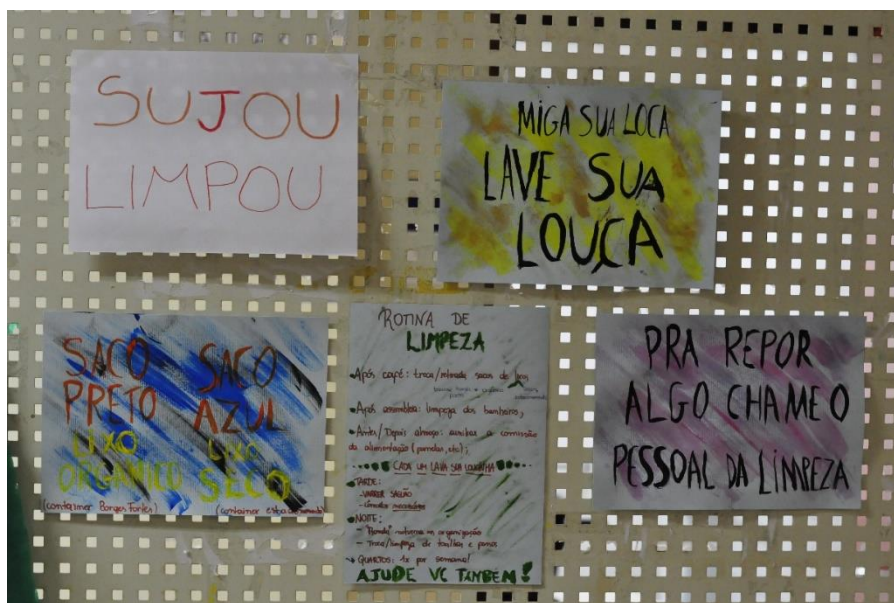 SUJOU
LIMPOU
MIGA SUA LOCA
LAVE SUA
LOUÇA
SACO
PRETO
LIXO
ORGÂNICO
(container Borges Fortes)
SACO
AZUL
LIXO
SECO
(container
ROTINA DE
LIMPEZA
Após café: troca/retirada sacos de lixo
Após assembleia: limpeza dos banheiros;
Antes/Depois almoço: auxiliar a comissão
da alimentação (panelas, etc);
CADA UM LAVA SUA LOUCINHA
TARDE:
- VARRER SAGUÃO
- Limpeza necessária
NOITE:
- "Ronda" noturna na organização
- Troca/limpeza de toalhas e panos
QUARTOS: 1x por semana!
AJUDE VC TAMBÉM!
PRA REPOR
ALGO CHAME O
PESSOAL DA LIMPEZA